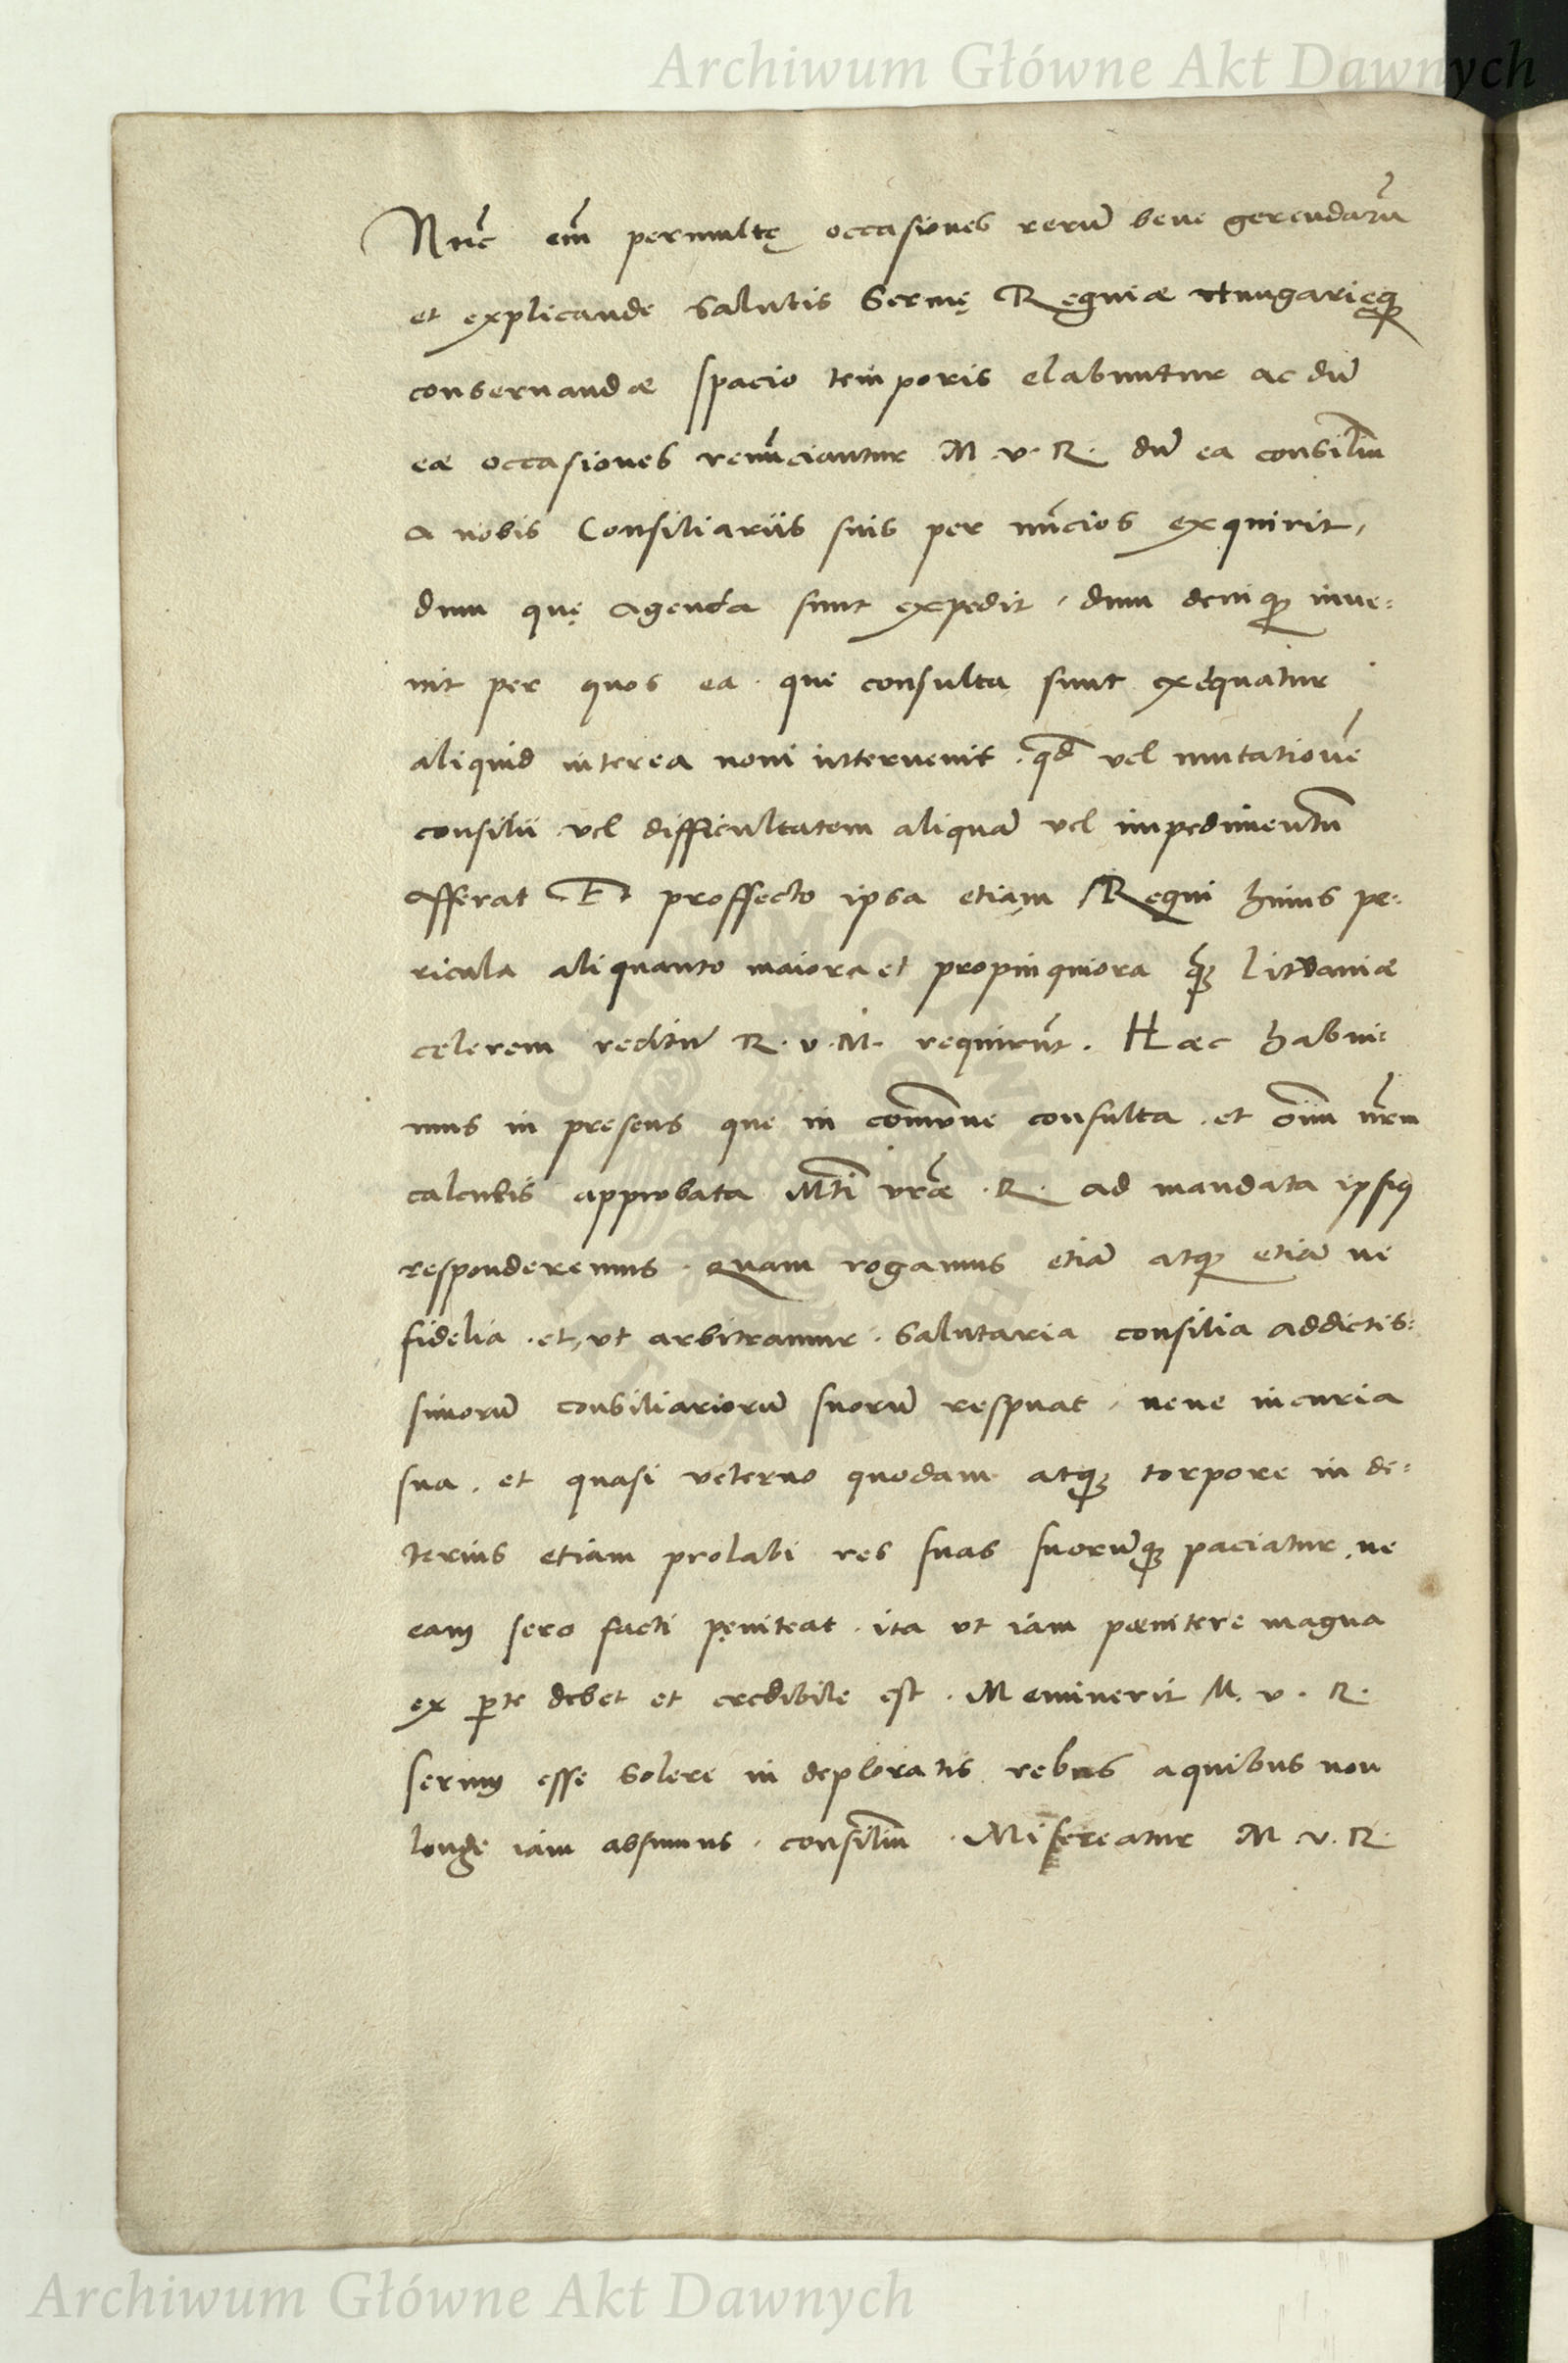 Archiwum Główne Akt Dawnych
Nūc em̄ permultę occasiones rerū bene gerendarū
et explicande salutis Sermę Reginæ Hungarieq₃
conservandæ spacio temporis elabuntur ac dū
eæ occasiones renūciantur M. v. R. dū ea consiliū
a nobis Consiliariis suis per nūcios exquirit,
dum quę agenda sunt expedit, dum deniq₃ inve:
nit per quos ea que consulta sunt exequatur
aliquid interea novi intervenit. qd̄ vel mutationē
consilii vel difficultatem aliquā vel impedimentū
afferat Et proffecto ipsa etiam Regni huius pe:
ricula aliquanto maiora et propinquiora q̄₃ Litvaniæ
cęlerem reditū R. v. M. requirūt. Hæc habui:
mus in presens que in comōne consulta. et oīm nr̄m
calculis approbata Mti vrāe. R. ad mandata ipsius
responderemus. quam rogamus etiā atq₃ etiā ne
fidelia. et, ut arbitramur. salutaria consilia addictis:
simorū consiliariorū suorū respuat, neve incuria
sua. et quasi veterno quodam atq₃ torpore in de:
terius etiam prolabi res suas suorūq₃ paciatur, ne
eam sero facti pęniteat. ita ut iam pœnitere magna
ex p̱te debet et credibile est. Meminerit M. v. R.
serum esse solere in deploratis rebus a quibus non
longe iam absumus. consiliū. Misereatur M. v. R.
Archiwum Główne Akt Dawnych